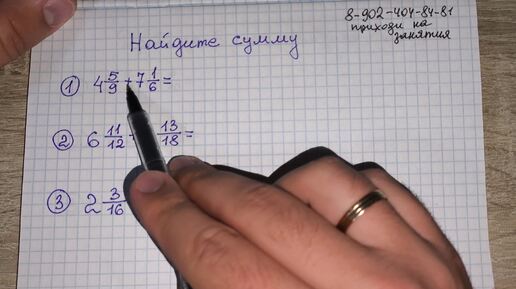 8-902-404-84-81
приходи на
занятия
Найдите сумму
① 4 5/9 + 7 1/6 =
② 6 11/12 + 13/18 =
③ 2 3/16